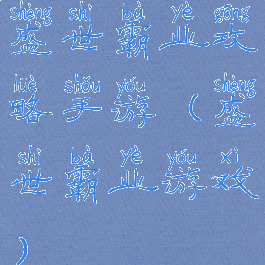 shèng shì bà yè gōng
盛世霸业攻
lüè shǒu yóu shèng
略手游(盛
shì bà yè yóu xì
世霸业游戏
)